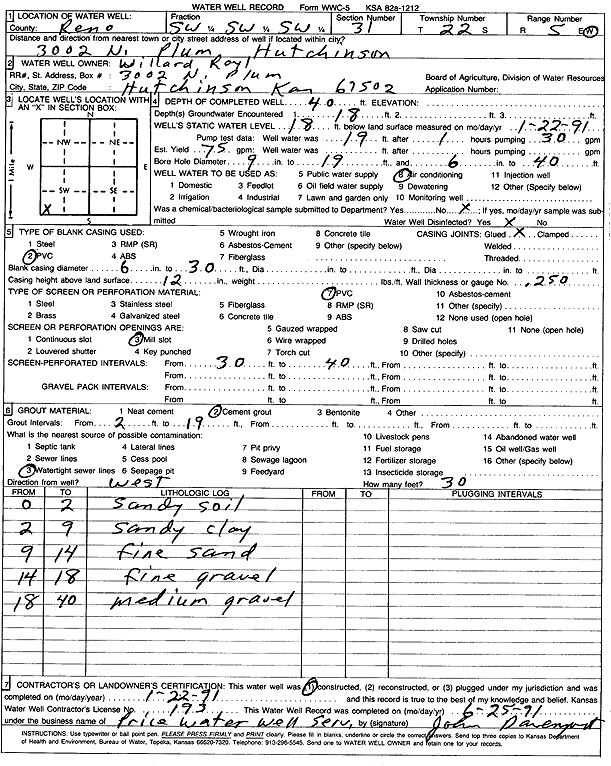 WATER WELL RECORD Form WWC-5 KSA 82a-1212
1 LOCATION OF WATER WELL: Fraction Section Number Township Number Range Number
County: Reno SW ¼ SW ¼ SW ¼ 31 T 22 S R 5 E/W
Distance and direction from nearest town or city street address of well if located within city?
3002 N. Plum Hutchinson
2 WATER WELL OWNER: Willard Royl
RR#, St. Address, Box # : 3002 N. Plum Board of Agriculture, Division of Water Resources
City, State, ZIP Code : Hutchinson Kan 67502 Application Number:
3 LOCATE WELL'S LOCATION WITH AN "X" IN SECTION BOX:
N
NW NE
W E
SW SE
X
S
1 Mile
4 DEPTH OF COMPLETED WELL 40 ft. ELEVATION:
Depth(s) Groundwater Encountered 1. 18 ft. 2. ft. 3. ft.
WELL'S STATIC WATER LEVEL 18 ft. below land surface measured on mo/day/yr 1-22-91
Pump test data: Well water was 19 ft. after 1 hours pumping 30 gpm
Est. Yield 75 gpm: Well water was ft. after hours pumping gpm
Bore Hole Diameter 9 in. to 19 ft., and 6 in. to 40 ft.
WELL WATER TO BE USED AS: 5 Public water supply 8 Air conditioning 11 Injection well
1 Domestic 3 Feedlot 6 Oil field water supply 9 Dewatering 12 Other (Specify below)
2 Irrigation 4 Industrial 7 Lawn and garden only 10 Monitoring well
Was a chemical/bacteriological sample submitted to Department? Yes No X ; If yes, mo/day/yr sample was submitted
Water Well Disinfected? Yes X No
5 TYPE OF BLANK CASING USED: 5 Wrought iron 8 Concrete tile CASING JOINTS: Glued X Clamped
1 Steel 3 RMP (SR) 6 Asbestos-Cement 9 Other (specify below) Welded
2 PVC 4 ABS 7 Fiberglass Threaded
Blank casing diameter 6 in. to 30 ft., Dia in. to ft., Dia in. to ft.
Casing height above land surface 12 in., weight lbs./ft. Wall thickness or gauge No. .250
TYPE OF SCREEN OR PERFORATION MATERIAL: 7 PVC 10 Asbestos-cement
1 Steel 3 Stainless steel 5 Fiberglass 8 RMP (SR) 11 Other (specify)
2 Brass 4 Galvanized steel 6 Concrete tile 9 ABS 12 None used (open hole)
SCREEN OR PERFORATION OPENINGS ARE: 5 Gauzed wrapped 8 Saw cut 11 None (open hole)
1 Continuous slot 3 Mill slot 6 Wire wrapped 9 Drilled holes
2 Louvered shutter 4 Key punched 7 Torch cut 10 Other (specify)
SCREEN-PERFORATED INTERVALS: From 30 ft. to 40 ft., From ft. to ft.
From ft. to ft., From ft. to ft.
GRAVEL PACK INTERVALS: From ft. to ft., From ft. to ft.
From ft. to ft., From ft. to ft.
6 GROUT MATERIAL: 1 Neat cement 2 Cement grout 3 Bentonite 4 Other
Grout Intervals: From 2 ft. to 19 ft., From ft. to ft., From ft. to ft.
What is the nearest source of possible contamination: 10 Livestock pens 14 Abandoned water well
1 Septic tank 4 Lateral lines 7 Pit privy 11 Fuel storage 15 Oil well/Gas well
2 Sewer lines 5 Cess pool 8 Sewage lagoon 12 Fertilizer storage 16 Other (specify below)
3 Watertight sewer lines 6 Seepage pit 9 Feedyard 13 Insecticide storage
Direction from well? West How many feet? 30
FROM TO LITHOLOGIC LOG FROM TO PLUGGING INTERVALS
0 2 Sandy soil
2 9 Sandy clay
9 14 fine sand
14 18 fine gravel
18 40 medium gravel
7 CONTRACTOR'S OR LANDOWNER'S CERTIFICATION: This water well was (1) constructed, (2) reconstructed, or (3) plugged under my jurisdiction and was
completed on (mo/day/year) 1-22-91 and this record is true to the best of my knowledge and belief. Kansas
Water Well Contractor's License No. 193 This Water Well Record was completed on (mo/day/yr) 6-25-91
under the business name of Price Water Well Serv. by (signature) John Davenport
INSTRUCTIONS: Use typewriter or ball point pen. PLEASE PRESS FIRMLY and PRINT clearly. Please fill in blanks, underline or circle the correct answers. Send top three copies to Kansas Department
of Health and Environment, Bureau of Water, Topeka, Kansas 66620-7320. Telephone: 913-296-5545. Send one to WATER WELL OWNER and retain one for your records.